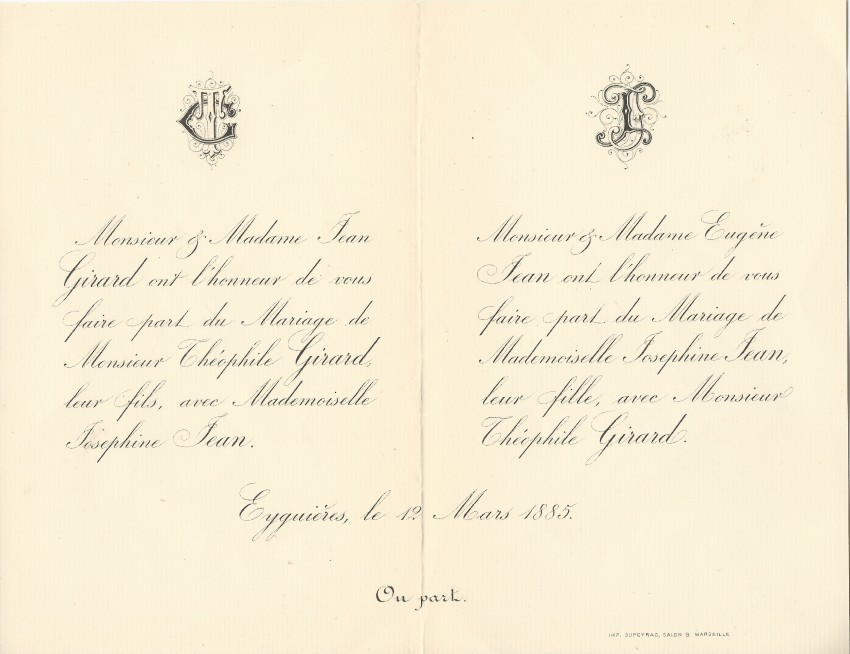 Monsieur & Madame Jean
Girard ont l'honneur de vous
faire part du Mariage de
Monsieur Théophile Girard,
leur fils, avec Mademoiselle
Josephine Jean.
Monsieur & Madame Eugène
Jean ont l'honneur de vous
faire part du Mariage de
Mademoiselle Josephine Jean,
leur fille, avec Monsieur
Théophile Girard.
Eyguières, le 12 Mars 1885.
On part.
IMP. DUPEYRAC, SALON B. MARSEILLE